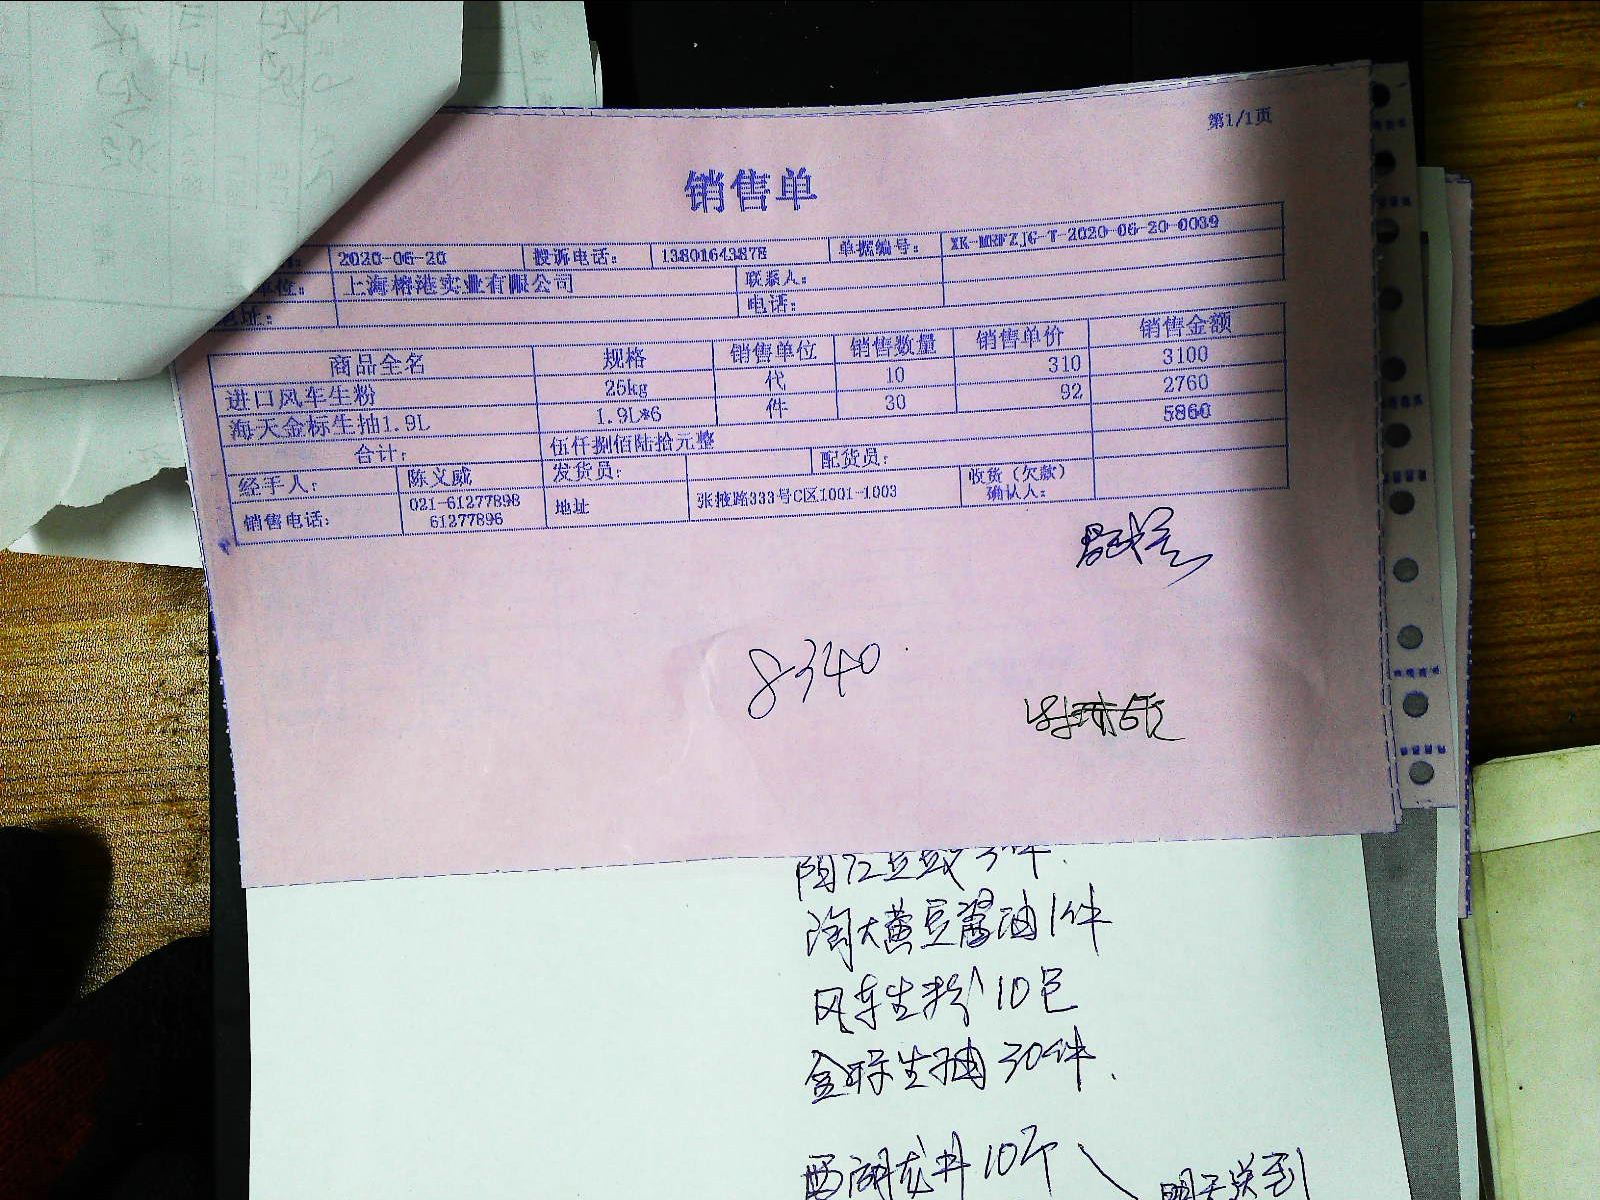 第1/1页
销售单
2020-06-20 投诉电话: 13801643878 单据编号: XK-MRFZJG-T-2020-06-20-0039
单位: 上海榕港实业有限公司 联系人:
地址: 电话:
商品全名 规格 销售单位 销售数量 销售单价 销售金额
进口风车生粉 25kg 代 10 310 3100
海天金标生抽1.9L 1.9L*6 件 30 92 2760
合计: 伍仟捌佰陆拾元整 5860
经手人: 陈义威 发货员: 配货员:
销售电话: 021-61277898 61277896 地址 张掖路333号C区1001-1003 收货(欠款)确认人:
8340
阳江豆豉3件.
淘大黄豆酱油1件
风车生粉10包
金标生抽30件.
西湖龙井10斤
明天送到